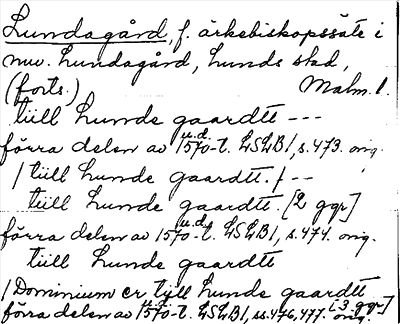 Lundagård, f. ärkebiskopssäte i
nuv. Lundagård, Lunds stad,
(forts.) Malm. l.
tiill Lunde gaardtt ---
förra delen av 1570-t. LSLB1, s. 473. orig.
u.d.
/ tiill Lunde gaardtt. / --
tiill Lunde gaardtt. [2 ggr]
förra delen av 1570-t. LSLB1, s. 474. orig.
u.d.
tiill Lunde gaardtt
/ Dominium er tiill Lunde gaardtt [3 ggr]
förra delen av 1570-t. LSLB1, ss. 476, 477. orig.